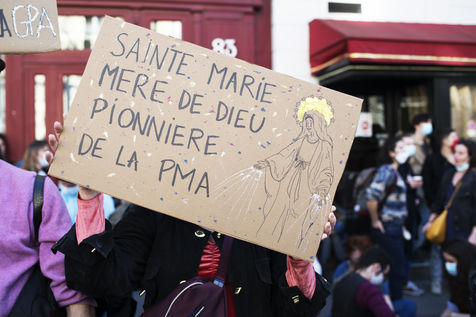 A GPA
83
SAINTE MARIE
MERE DE DIEU
PIONNIERE
DE LA PMA